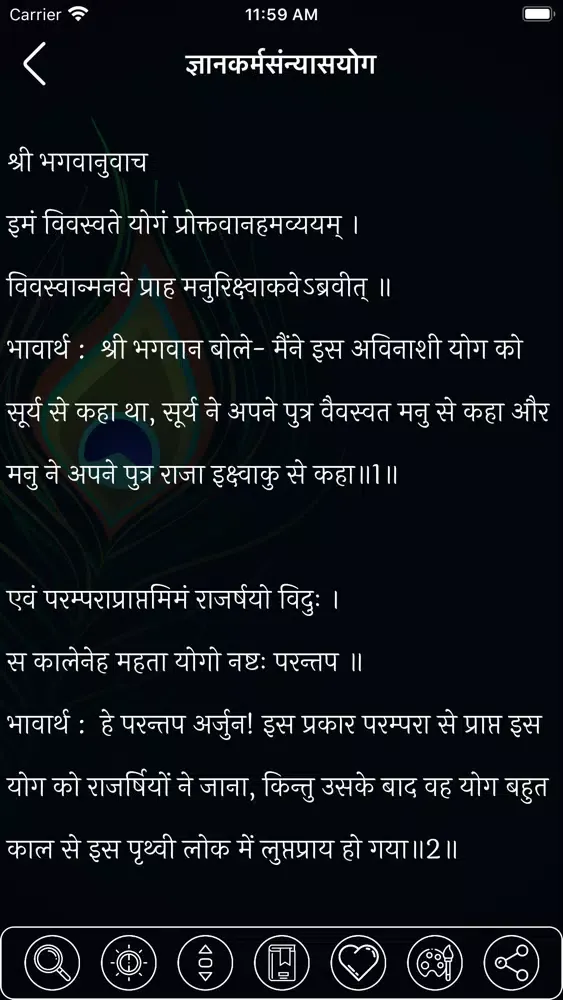 Carrier 11:59 AM
ज्ञानकर्मसंन्यासयोग
श्री भगवानुवाच
इमं विवस्वते योगं प्रोक्तवानहमव्ययम् ।
विवस्वान्मनवे प्राह मनुरिक्ष्वाकवेऽब्रवीत् ॥
भावार्थ : श्री भगवान बोले- मैंने इस अविनाशी योग को
सूर्य से कहा था, सूर्य ने अपने पुत्र वैवस्वत मनु से कहा और
मनु ने अपने पुत्र राजा इक्ष्वाकु से कहा॥1॥
एवं परम्पराप्राप्तमिमं राजर्षयो विदुः ।
स कालेनेह महता योगो नष्टः परन्तप ॥
भावार्थ : हे परन्तप अर्जुन! इस प्रकार परम्परा से प्राप्त इस
योग को राजर्षियों ने जाना, किन्तु उसके बाद वह योग बहुत
काल से इस पृथ्वी लोक में लुप्तप्राय हो गया॥2॥